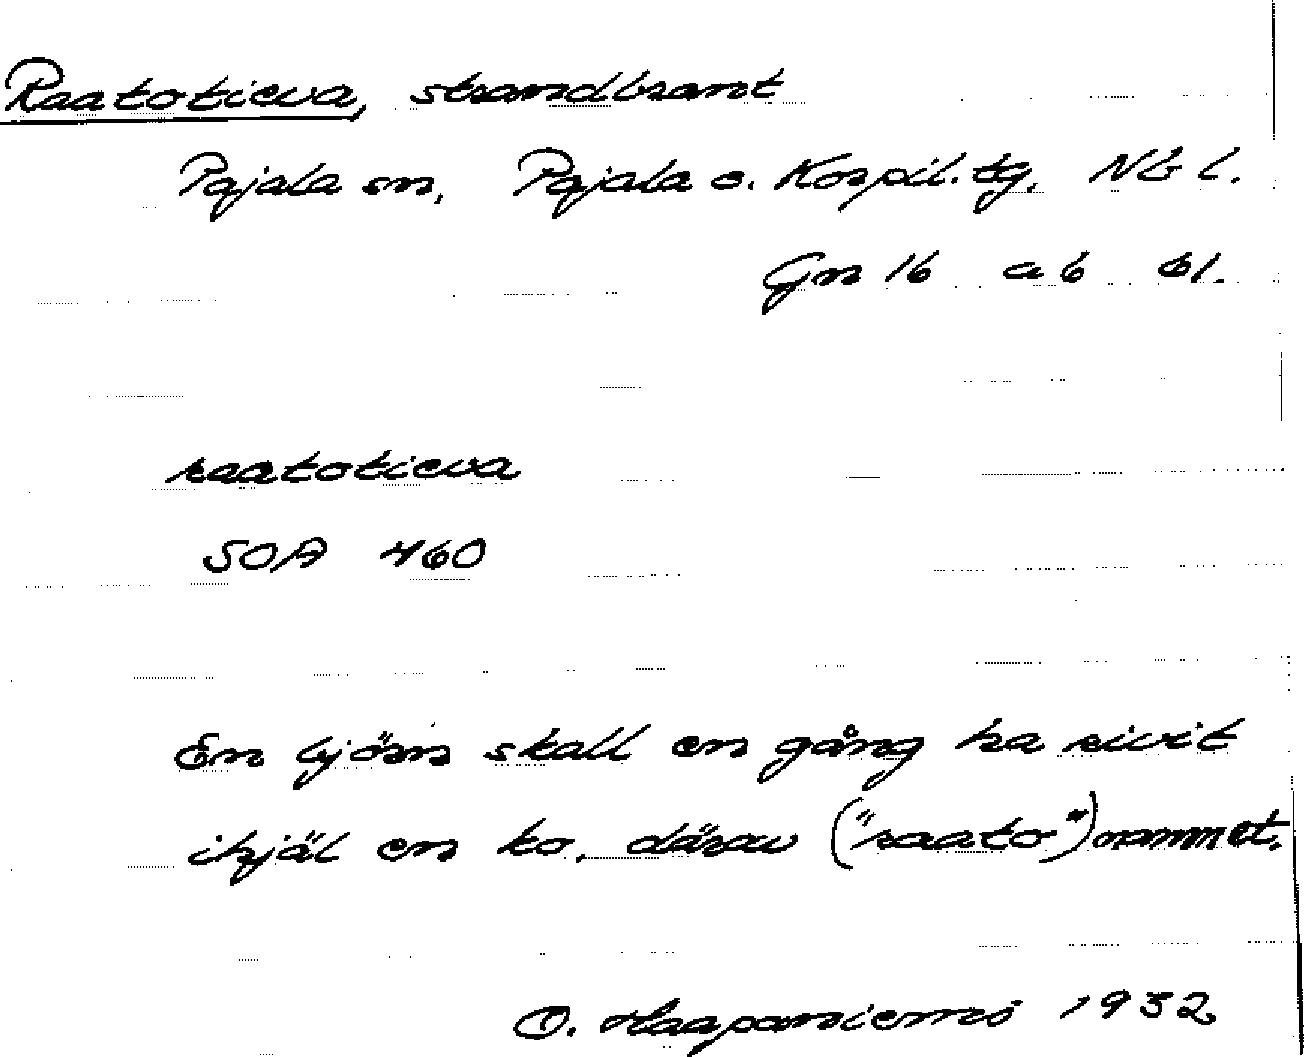 Raatotieva, strandbrant
Pajala sn, Pajala o. Korpil. tg. Nb l.
Gn 16 a 6 61.
raatotieva
SOA 460
En björn skall en gång ha rivit
ihjäl en ko, därav ("raato") namnet.
O. Haapaniemi 1932